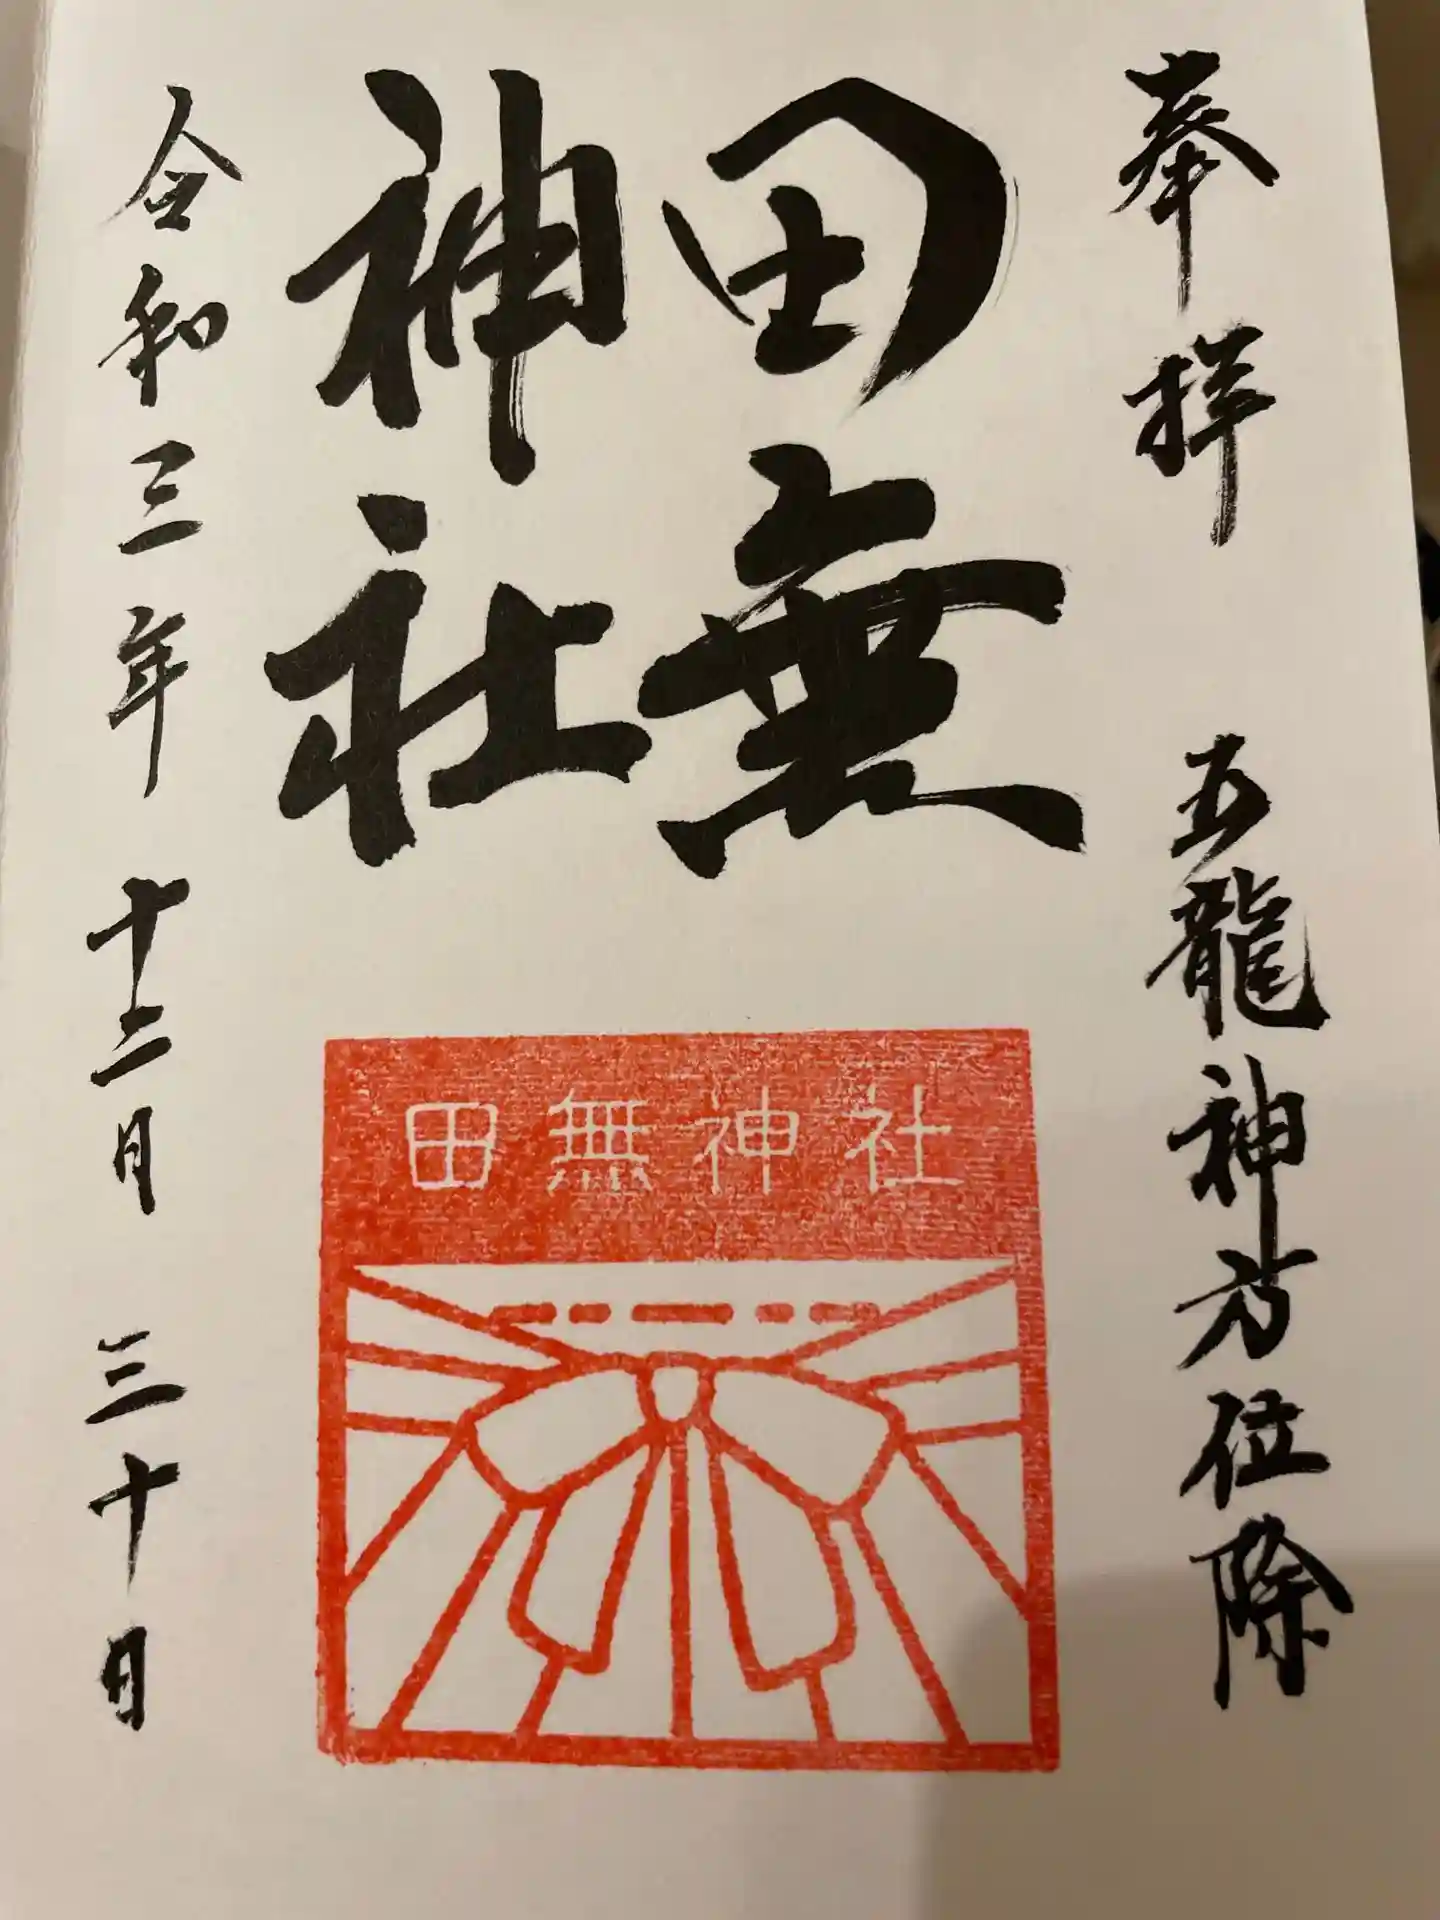 奉拝 五龍神方位除
田無
神社
令和三年十二月三十日
田無神社